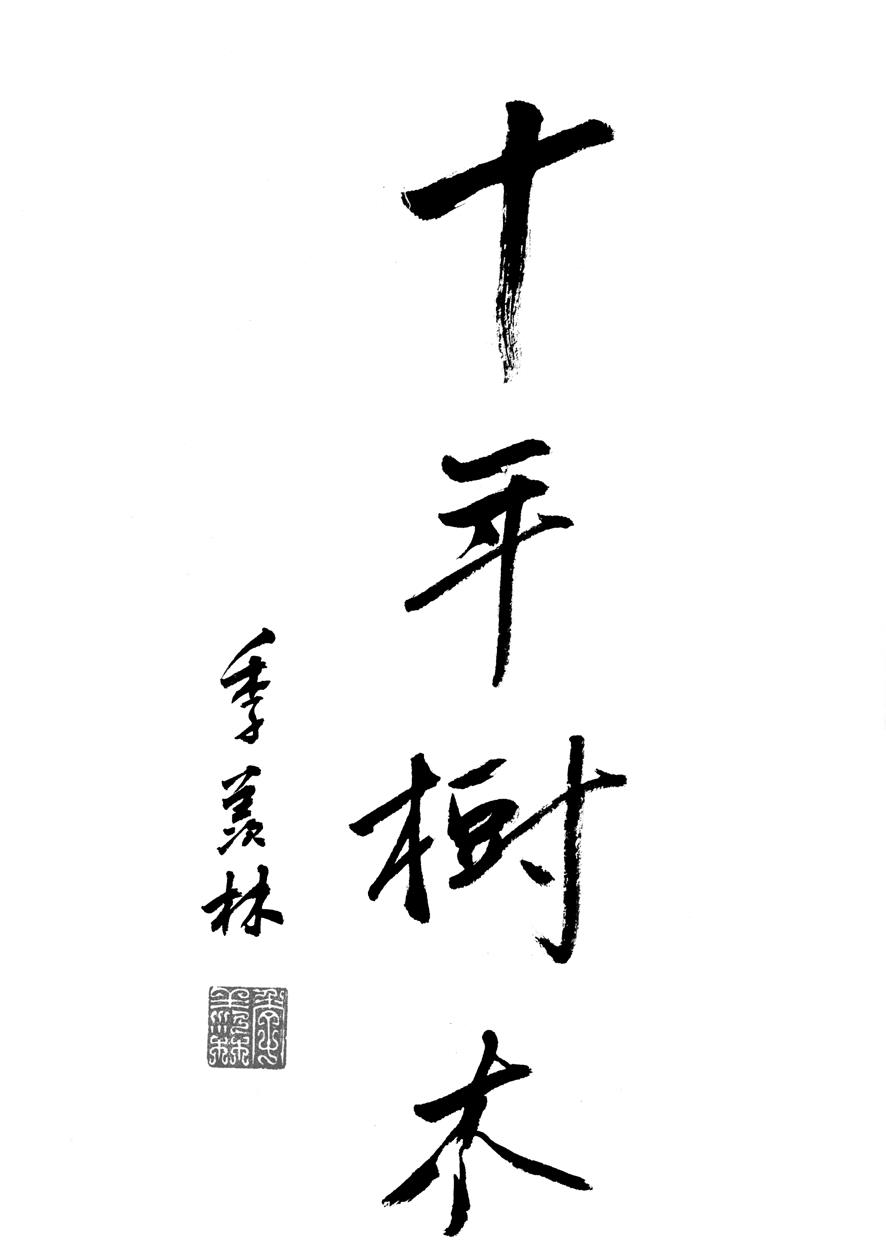 十年樹木
季羡林